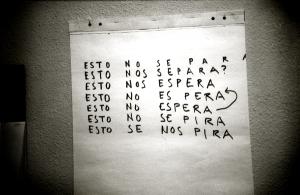 ESTO NO SE PARA
ESTO NOS SEPARA?
ESTO NOS ESPERA
ESTO NO ES PERA
ESTO NO ESPERA
ESTO NO SE PIRA
ESTO SE NOS PIRA